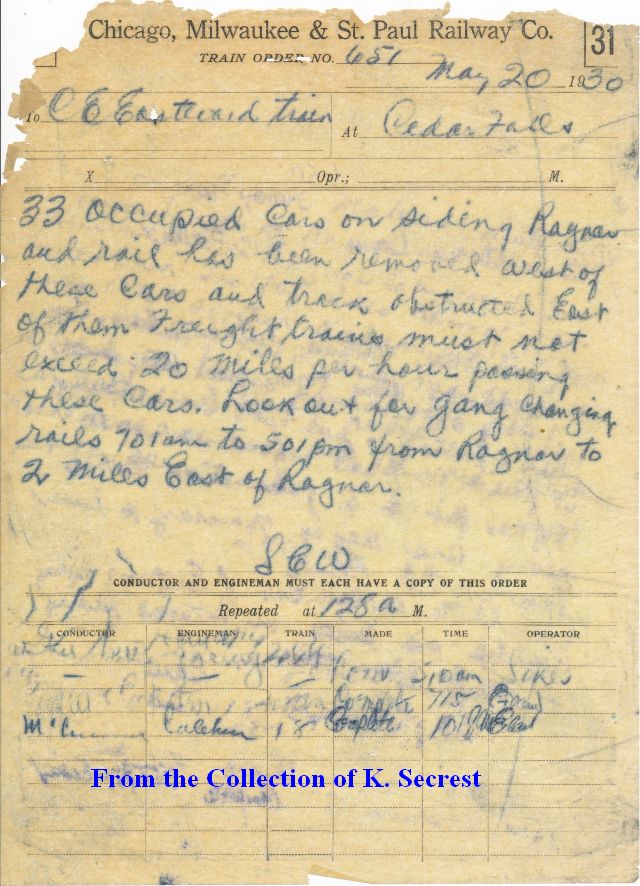 Chicago, Milwaukee & St. Paul Railway Co.
31
TRAIN ORDER NO. 651
May 20 1930
To C E Eastward train At Cedar Falls
X Opr.; M.
33 Occupied Cars on siding Ragnar
and rail has been removed west of
these Cars and track obstructed East
of them Freight trains must not
exceed 20 miles per hour passing
these Cars. Look out for gang changing
rails 701am to 501pm from Ragnar to
2 Miles East of Ragnar.
S C W
CONDUCTOR AND ENGINEMAN MUST EACH HAVE A COPY OF THIS ORDER
Repeated at 125a M.
CONDUCTOR ENGINEMAN TRAIN MADE TIME OPERATOR
Com am Sikes
Complete 715
18 Complete 101
From the Collection of K. Secrest